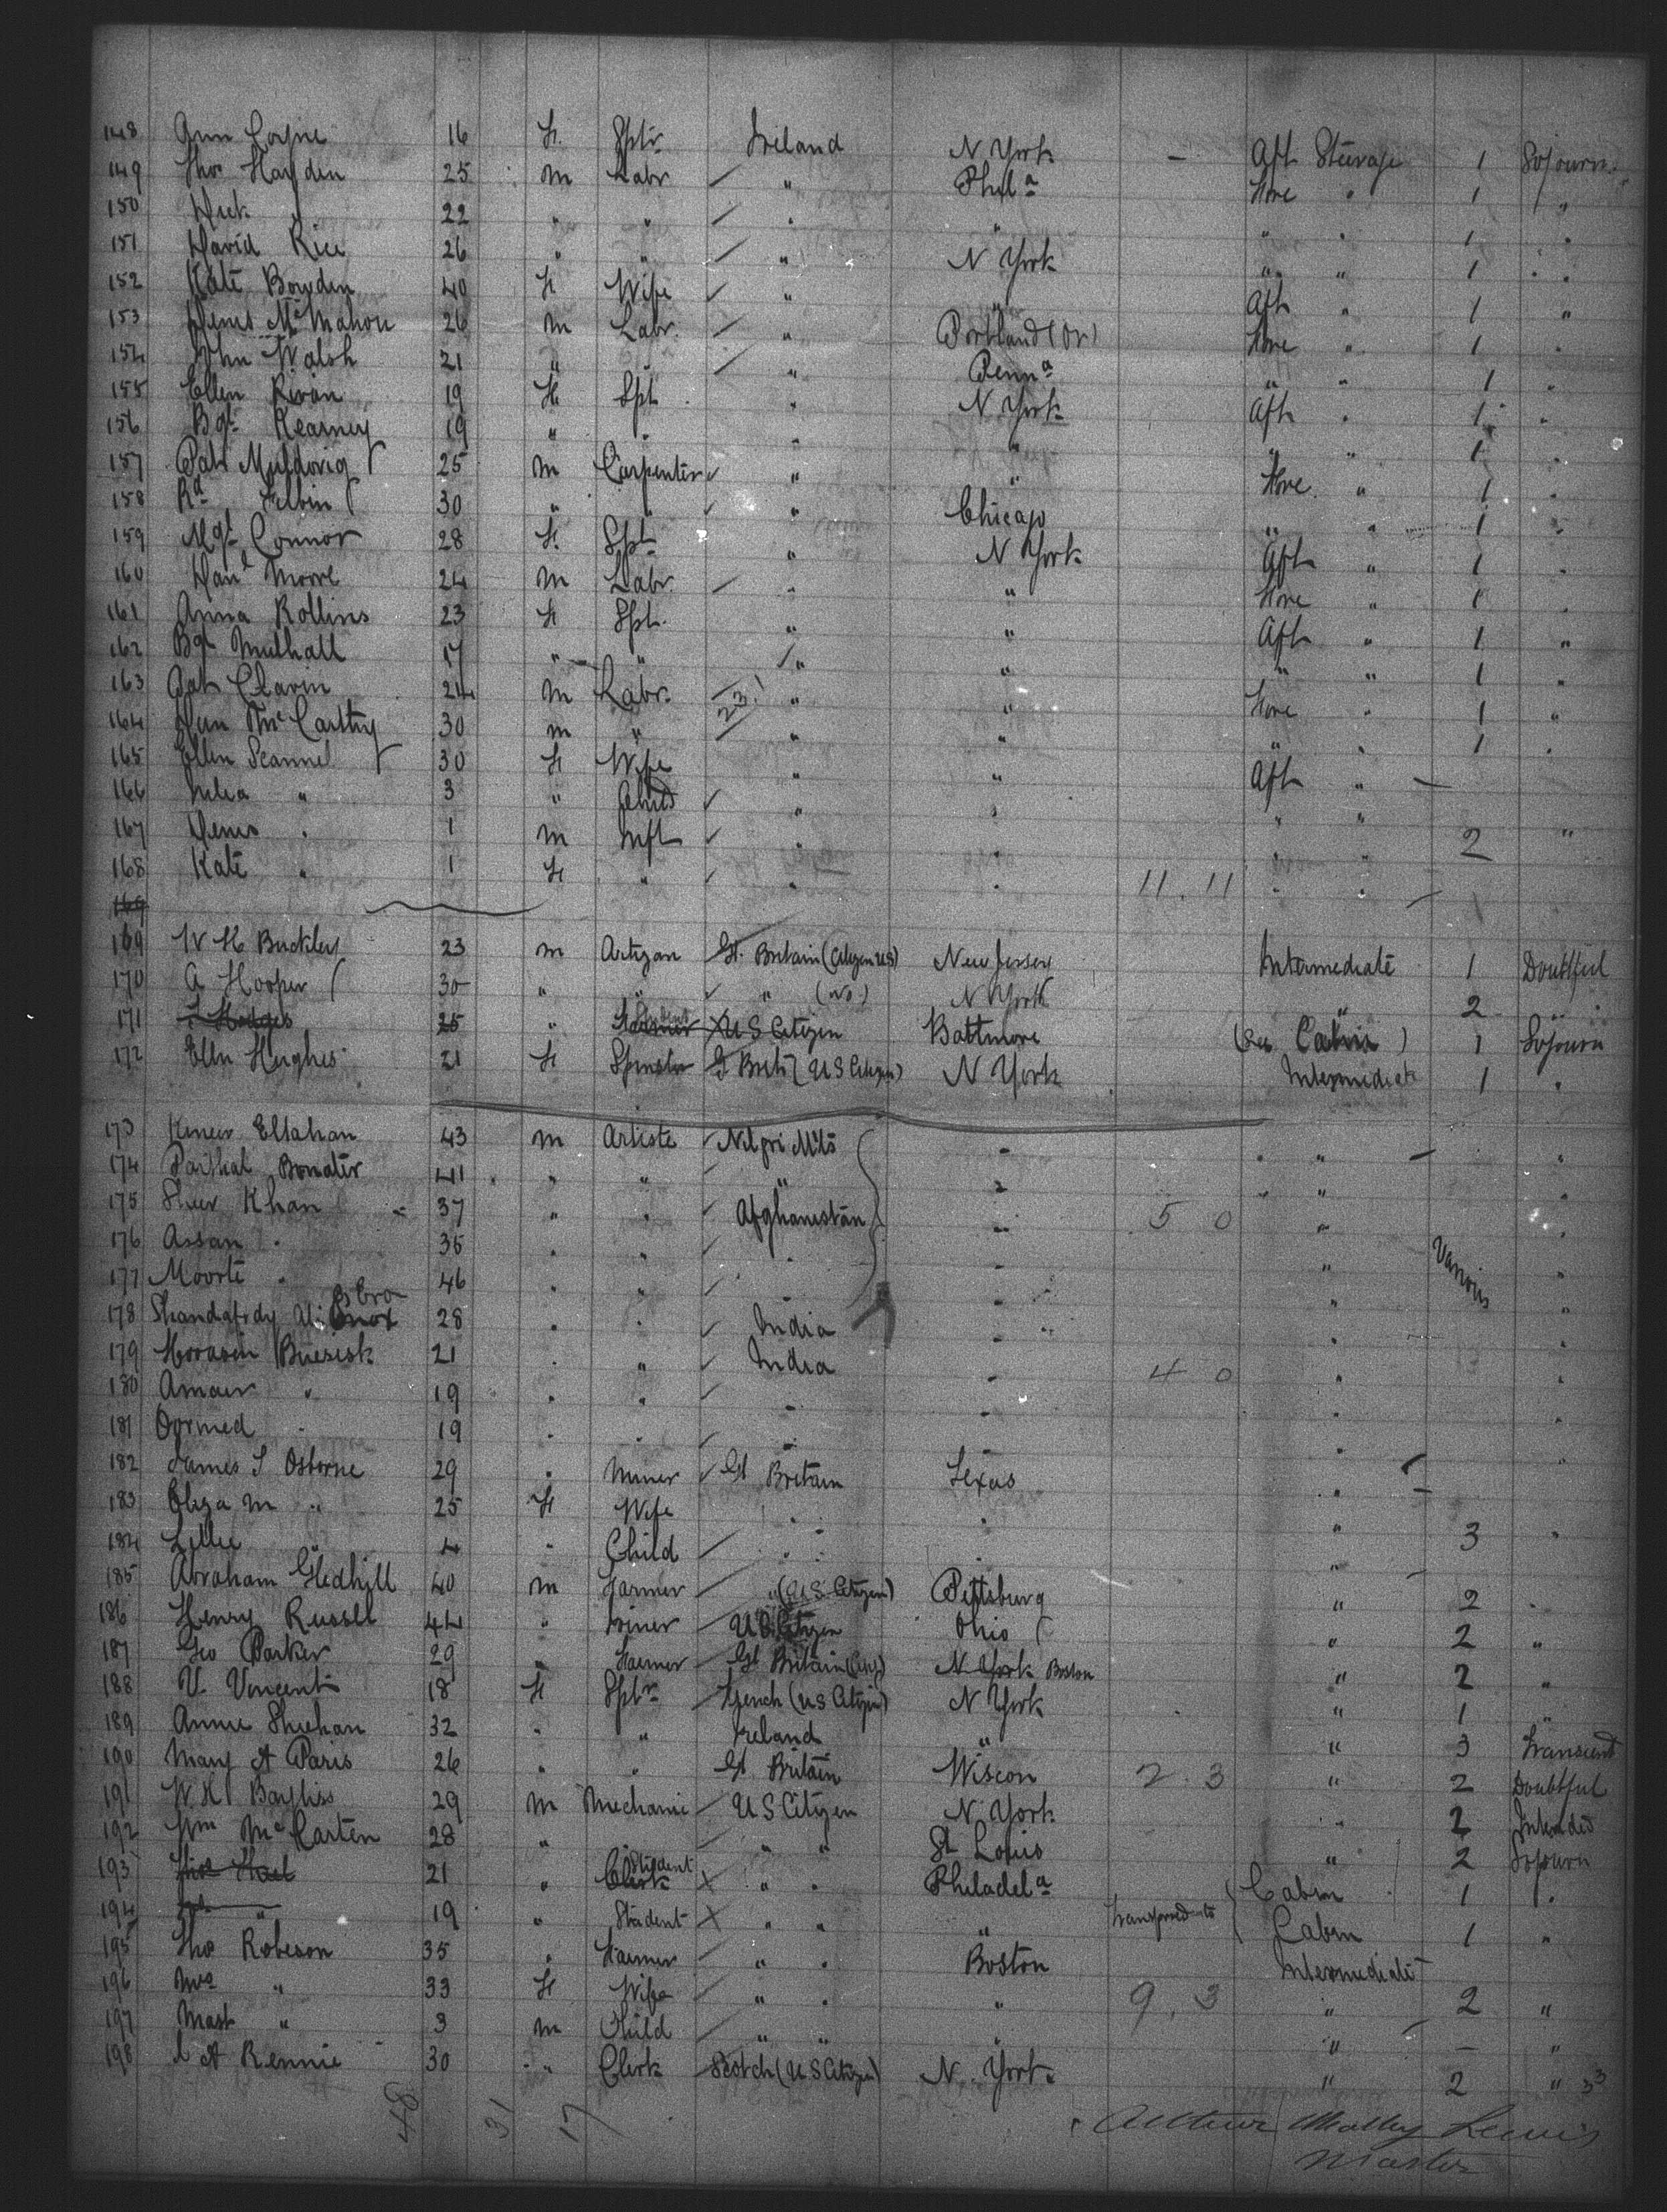 148 Ann Coyne 16 F. Sptr Ireland N York - Aft Steerage 1 Sojourn
149 Thos Hayden 25 m Labr " Phila Fore " 1 "
150 " 22 " " " " " " 1 "
151 David Rice 26 " " " N York " " 1 "
152 Kate Bowden 40 F Wife " " Aft " 1 "
153 Denis McMahon 26 m Labr. " Portland (Or) Fore " 1 "
154 John Walsh 21 " " " Penna " " 1 "
155 Ellen Kivan 19 F Spt " N York Aft " 1 "
156 Bgt Kearney 19 " " " " " " 1 "
157 Pat 25 m Carpenter " " Fore " 1 "
158 30 " " " Chicago " " 1 "
159 Mgt Connor 28 F. Spt " N York Aft " 1 "
160 Danl Moore 24 m Labr. " " Fore " 1 "
161 Anna Rollins 23 F Spt. " " Aft " 1 "
162 Bgt Mulhall 17 " " " " " " 1 "
163 Pat Clavin 24 m Labr. 23 " " Fore " 1 "
164 McCarthy 30 m " " " " " 1 "
165 Ellen Scannel 30 F Wife " " Aft " -
166 Julia " 3 " Child " " " "
167 Denis " 1 m Inft " " " " 2 "
168 Kate " 1 F " " " 11.11 " "
169
169 W H Buckley 23 m Artizan Gt. Britain (Citizen US) New Jersey Intermediate 1 Doubtful
170 A Hooper 30 " " " (No) N York " 2 "
171 Hodges 25 " Farmer Student X U S Citizen Baltimore (See Cabin) 1 Sojourn
172 Ellen Hughes 21 F Spinster G Brit (U S Citizen) N York Intermediate 1 "
173 Kineer Ellahan 43 m Artiste Nilgri Mts - " " - "
174 Parthal Bomatir 41 " " " - " " "
175 Sheer Khan 37 " " Afghanistan - 5 0 " "
176 Assan " 35 " " " - " Various "
177 Moorte " 46 " " " - " "
178 28 " " India - " "
179 21 " " India - 4 0 " "
180 Amair " 19 " " " - " "
181 Oormed " 19 " " " - " "
182 James S Osborne 29 " Miner Gt Britain Texas " -
183 Eliza M " 25 F Wife " " " 3 "
184 Lillie " 4 " Child " " "
185 Abraham Gledhill 40 m Farmer " (U S Citizen) Pittsburg " 2 "
186 Henry Russell 44 " Miner U S Citizen Ohio " 2 "
187 Geo Parker 29 " Farmer Gt Britain N York Boston " 2 "
188 V. Vincent 18 F Sptr French (U S Citizen) N York " 1 "
189 Annie Sheehan 32 " " Ireland " " 3 Transient
190 Mary A Paris 26 " " Gt Britain Wiscon 2.3 " 2 Doubtful
191 W H Bayliss 29 m Mechanic U S Citizen N. York " 2 Intended
192 Wm McCarten 28 " " " St Louis " 2 Sojourn
193 21 " Clerk Student X " " Philadela Cabin 1 "
194 " 19 " Student X " " " Transferred to Cabin 1 "
195 Thos Robeson 35 " Farmer " " Boston Intermediate
196 Mrs " 33 F Wife " " " 9.3 " 2 "
197 Mast " 3 m Child " " " " - "
198 A Rennie 30 " Clerk Scotch (U S Citizen) N. York " 2 " 33
48 31 17
Arthur Lewis
Master